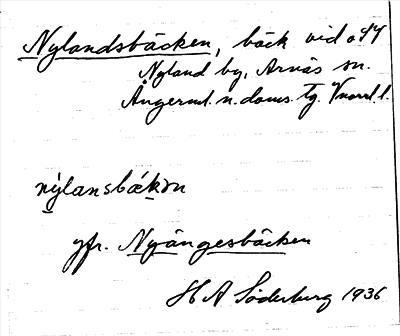 Nylandsbäcken, bäck vid o SV
Nyland by, Arnäs sn.
Ångerml. n. doms. tg. Vnorrl. l.
nylansbækɔn
jfr. Nyängesbäcken
H A Söderberg 1936